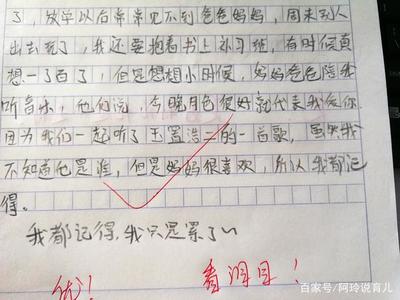 了，放学以后常常见不到爸爸妈妈，周末别人
出去玩了，我还要抱着书上补习班，有时候真
想一了百了，但是想想小时候，妈妈爸爸陪我
听音乐，他们说，今晚月色很好就代表我爱你
因为我们一起听了玉置浩二的一首歌，虽然我
不知道他是谁，但是妈妈很喜欢，所以我都记
得。
我都记得，我只是累了~
优！ 看泪目！
百家号/阿玲说育儿